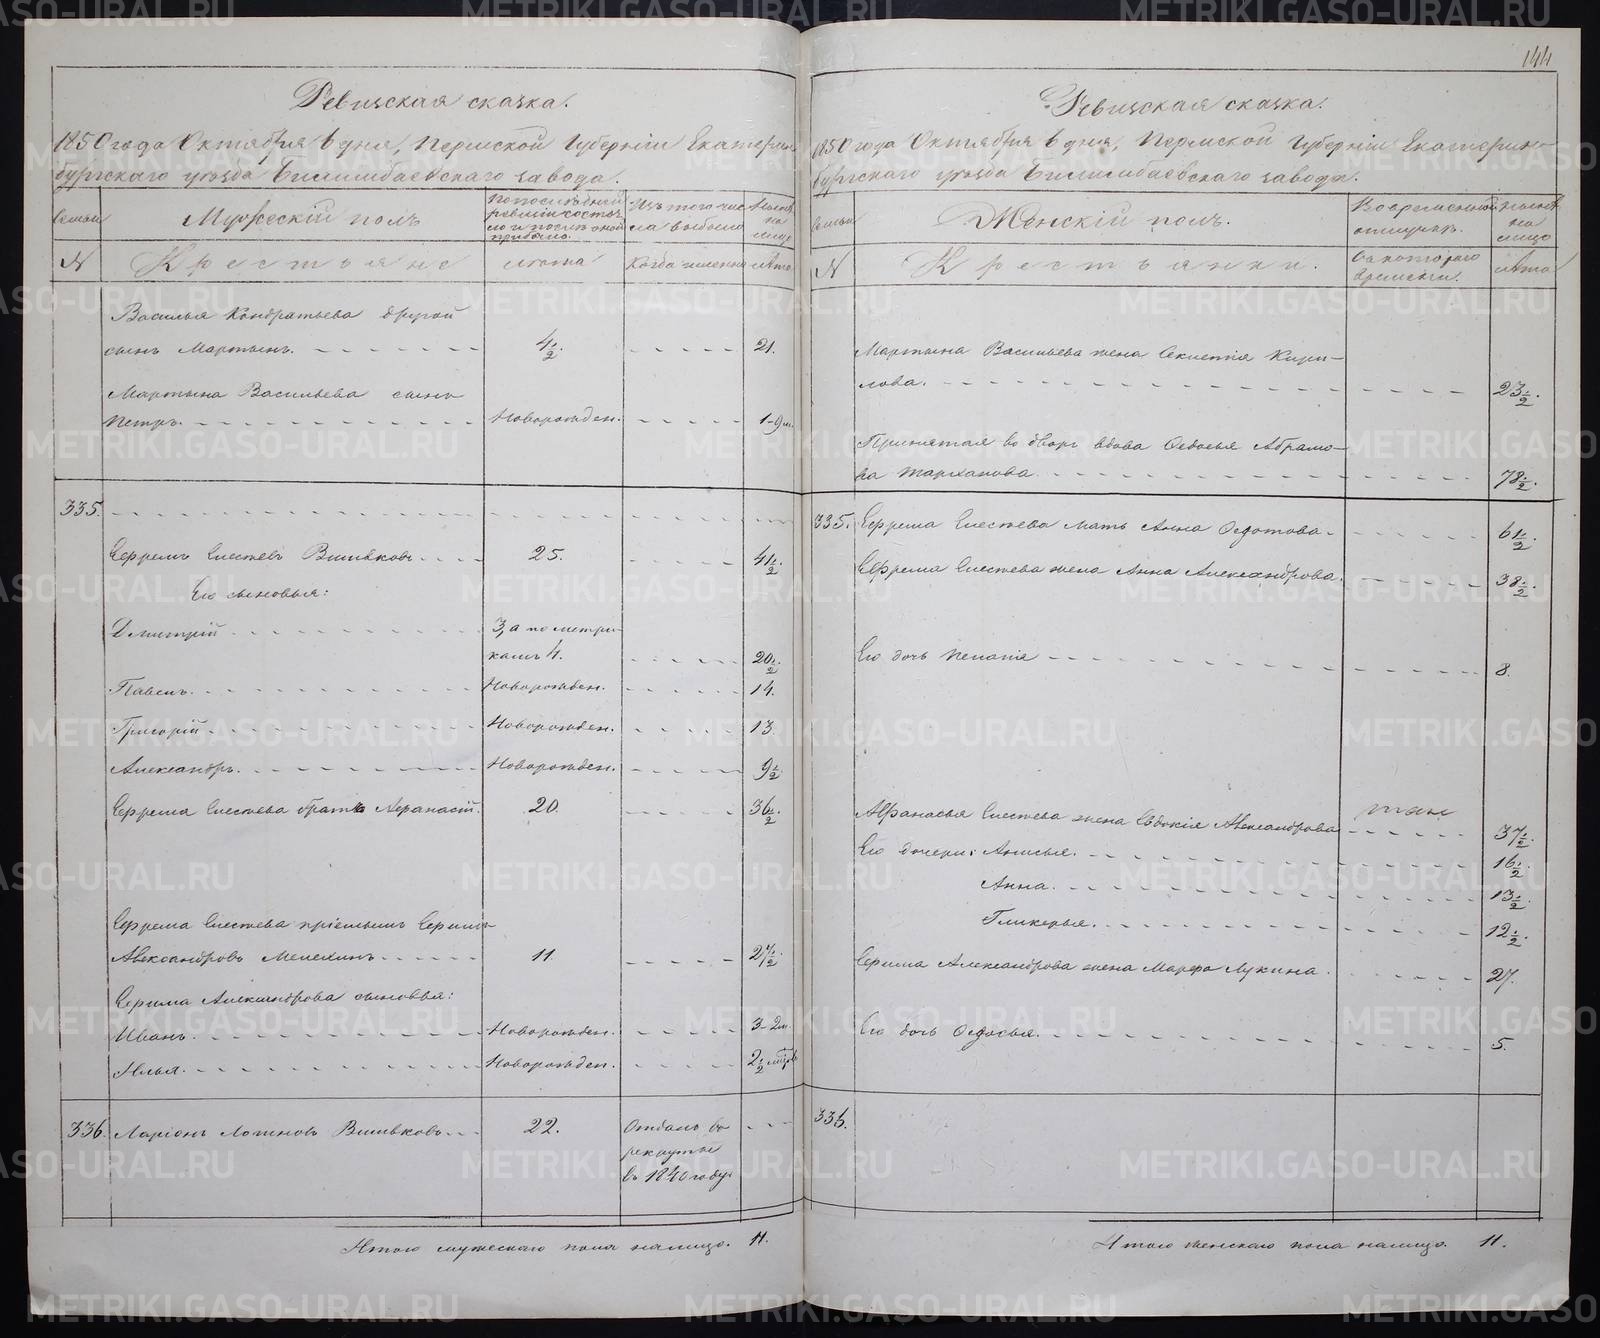 144
Ревизская сказка.
1850 года Октября 6 дня, Пермской Губернии Екатерин
бургскаго уезда Билимбаевскаго завода.
Семьи
Мужеский полъ
По последней
ревизии состоя
ло и после оной
прибыло.
Изъ того чис
ла выбыло
Ныне
на
лицо
N
Крестьяне
лета
Когда именно
лета
Василья Кондратьева другой
сынъ Мартынъ. 4½. 21.
Мартына Васильева сынъ
Петръ. Новорожден. 1-9 м.
335.
Ефремъ Вшивковъ 25. 41½.
Его сыновья:
Дмитрий 3, а по метри
камъ 4. 20½.
Павелъ. Новорожден. 14.
Григорий Новорожден. 13.
Александръ. Новорожден. 9½
Ефрема братъ Афанасий 20. 36½.
Ефрема приемышъ
Александровъ 11. 27½.
Александрова сыновья:
Иванъ. Новорожден. 3-2 м.
Илья. Новорожден. 2½
336. Ларионъ Логиновъ Вшивковъ 22. Отданъ въ
рекруты
въ 1840 году.
Итого мужескаго пола налицо. 11.
Ревизская сказка.
1850 года Октября 6 дня, Пермской Губернии Екатерин-
бургскаго уезда Билимбаевскаго завода.
Семьи
Женский полъ.
Во временной
отлучке.
Ныне
на
лицо
N
Крестьянки.
Съ котораго
времени.
лета
Мартына Васильева жена Кири-
лова. 23½.
Принятая во дворъ вдова Федосья Абрамо-
ва 78½.
335. Ефрема мать Анна Федотова 61½.
Ефрема жена Анна Александрова. 38½.
Его дочь Пелагия 8.
Афанасья жена Евдокия Александрова 37½.
Его дочери: Анисья. 16½.
Анна. 13½.
Гликерья. 12½.
Александрова жена Марфа Лукина. 27.
Его дочь Федосья. 5.
336.
Итого женскаго пола налицо. 11.
METRIKI.GASO-URAL.RU